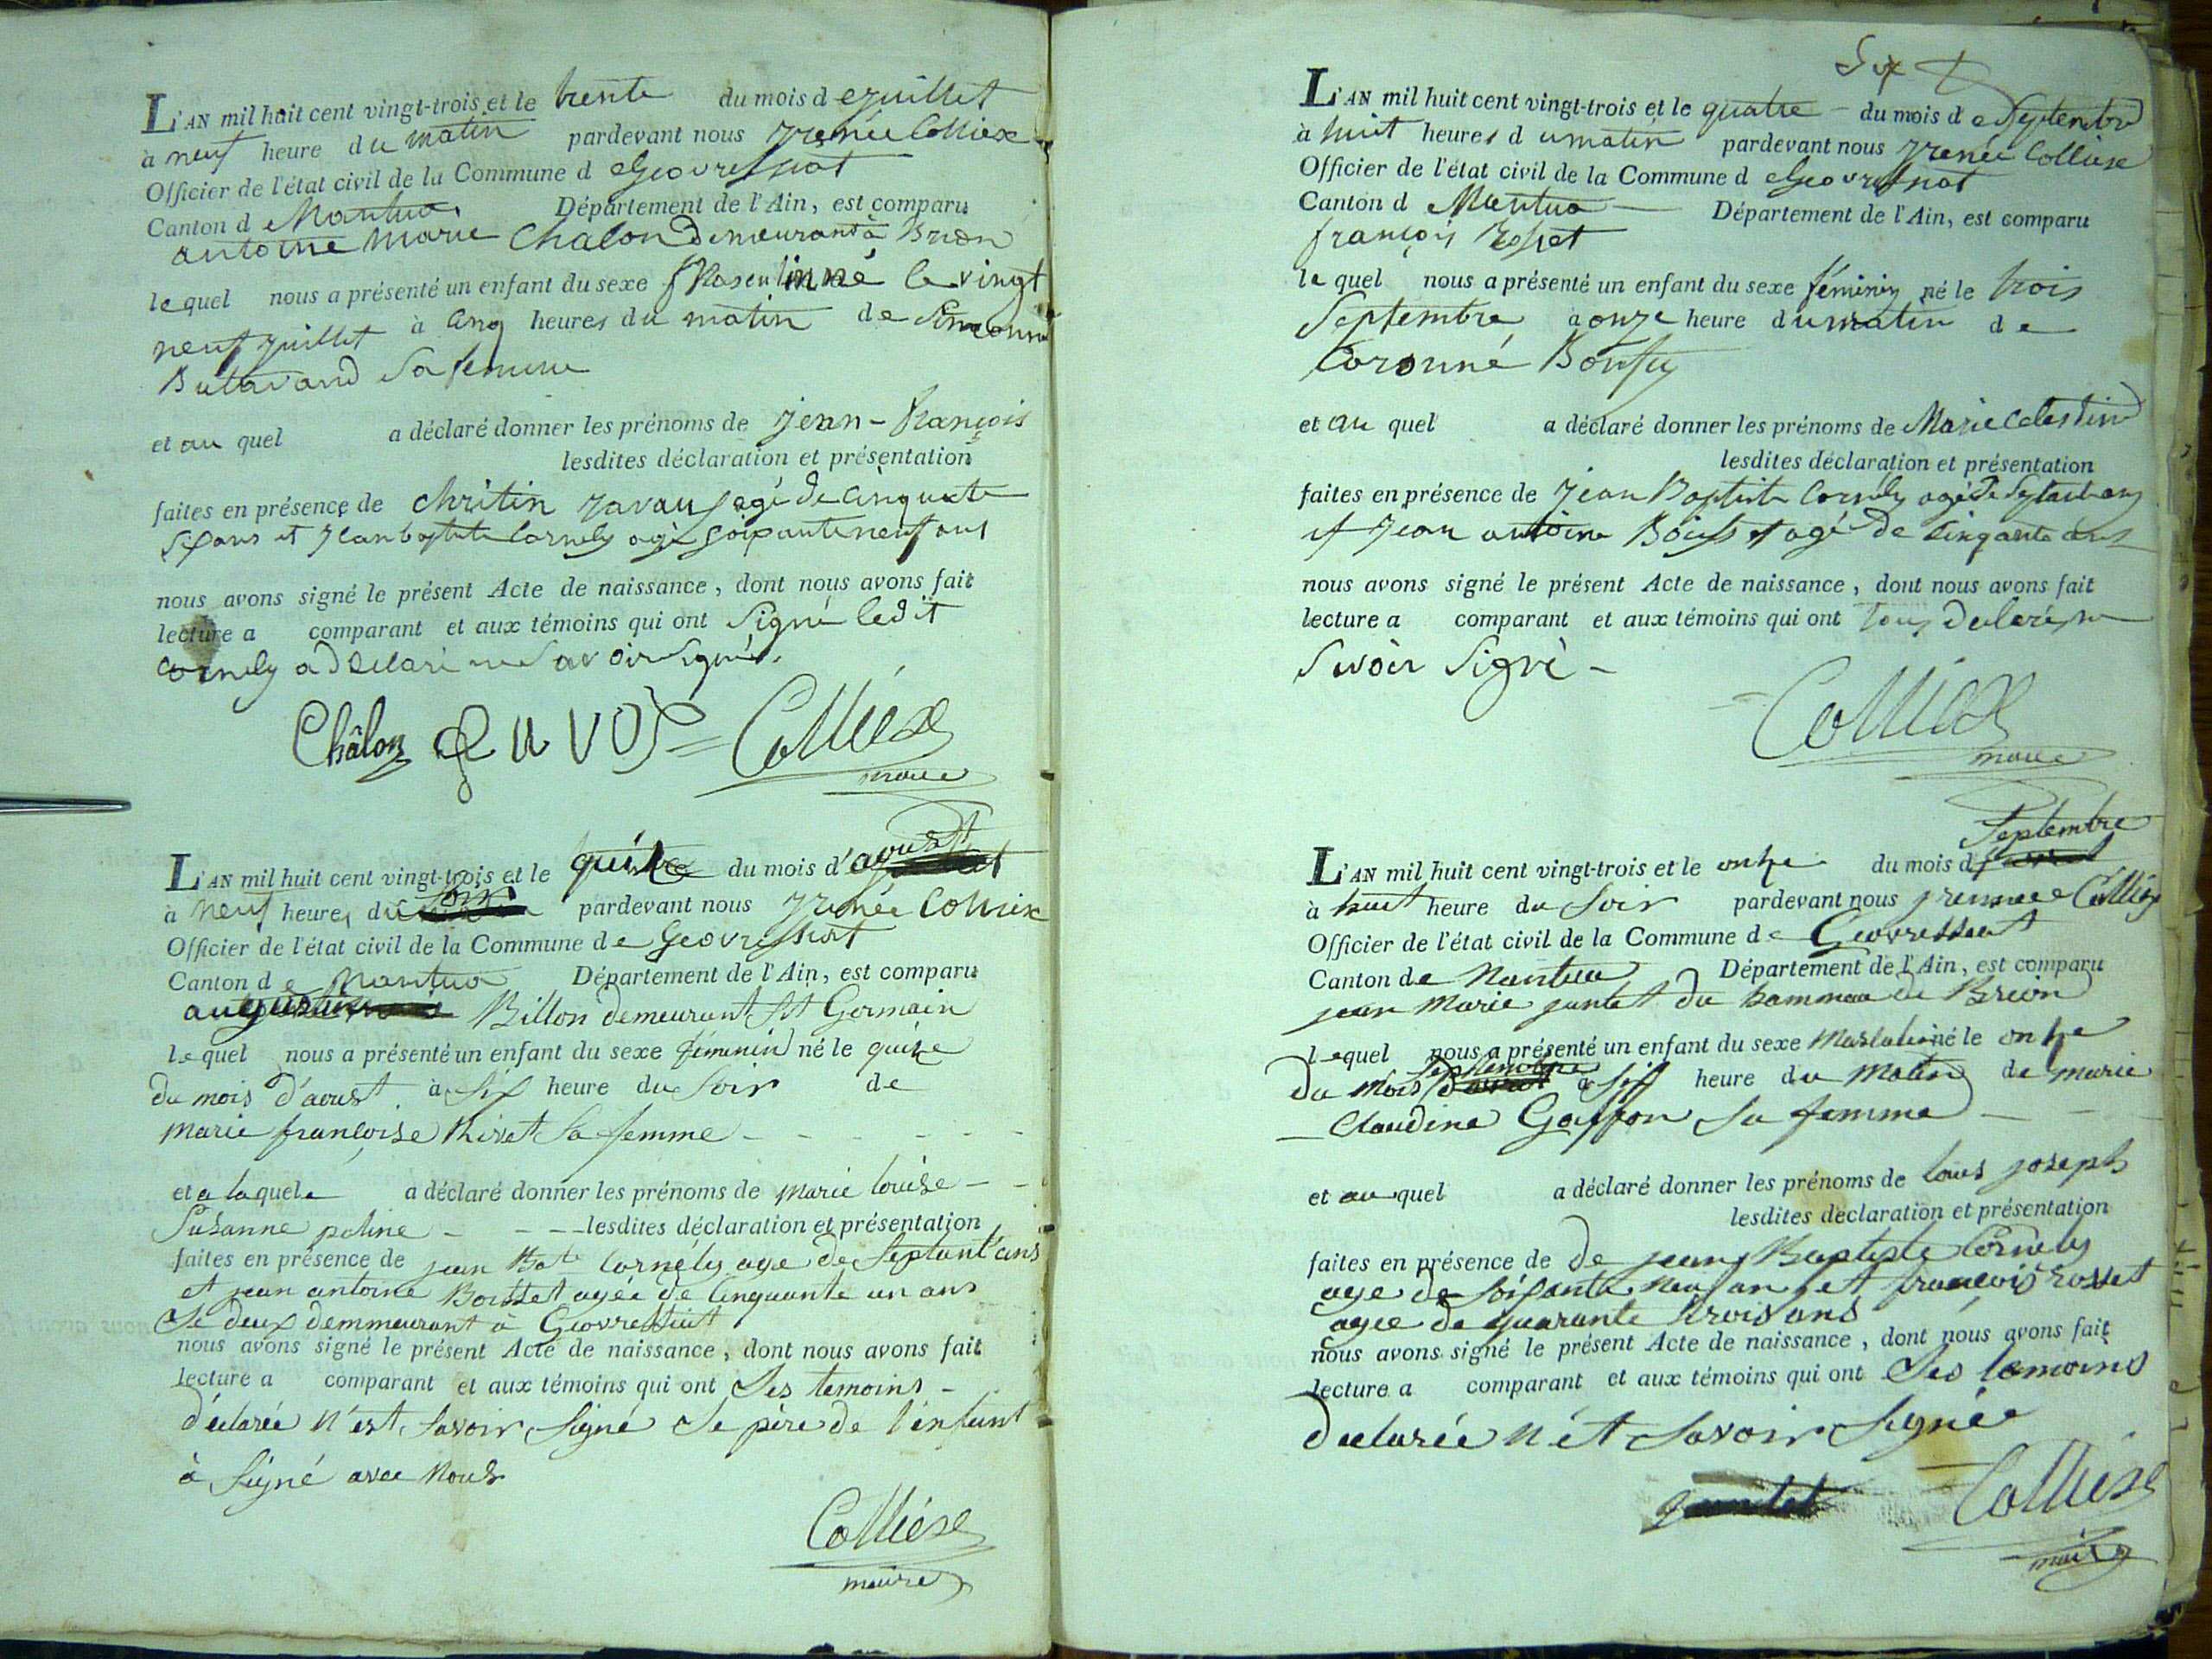 L'AN mil huit cent vingt-trois et le trente du mois d e juillet
à neuf heure du matin pardevant nous yrenée Colliex
Officier de l'état civil de la Commune d e Geovressiat
Canton d e Nantua Département de l'Ain, est comparu
antoine Marie Chalon demeurant à Brion
lequel nous a présenté un enfant du sexe Masculin né le vingt
neuf juillet à cinq heures du matin de
sa femme
et au quel a déclaré donner les prénoms de jean-françois
lesdites déclaration et présentation
faites en présence de chritin agé de cinquante
six ans et jean baptiste Cornely agé soixante neuf ans
nous avons signé le présent Acte de naissance, dont nous avons fait
lecture a comparant et aux témoins qui ont signé ledit
Cornely a declaré ne savoir signé.
Châlon Colliex
maire
L'AN mil huit cent vingt-trois et le quinze du mois d'aoust
à neuf heures du soir pardevant nous yrenée Colliex
Officier de l'état civil de la Commune de Geovressiat
Canton d e Nantua Département de l'Ain, est comparu
augustin Billon demeurant St Germain
lequel nous a présenté un enfant du sexe féminin né le quize
du mois d'aoust à six heure du soir de
marie françoise sa femme
et a laquele a déclaré donner les prénoms de marie louise
Susanne poline lesdites déclaration et présentation
faites en présence de jean Bat. Cornély age de septant'ans
et jean antoine Boisset agée de cinquante un ans
Le deux demmeurant à Geovressiat
nous avons signé le présent Acte de naissance, dont nous avons fait
lecture a comparant et aux témoins qui ont Les temoins
déclarée n'est savoir signé Le père de l'enfant
à signé avec nous
Colliex
maire
Six
L'AN mil huit cent vingt-trois et le quatre du mois d e Septembre
à huit heures d u matin pardevant nous yrenée Colliex
Officier de l'état civil de la Commune d e Geovressiat
Canton d e Nantua Département de l'Ain, est comparu
françois Rosset
le quel nous a présenté un enfant du sexe féminin né le trois
Septembre à onze heure du matin de
et au quel a déclaré donner les prénoms de Marie Celestine
lesdites déclaration et présentation
faites en présence de jean Baptiste Cornély agé de septant ans
et jean antoine Boisset agé de cinqante ans
nous avons signé le présent Acte de naissance, dont nous avons fait
lecture a comparant et aux témoins qui ont tous declarés ne
savoir signé -
Colliex
maire
Septembre
L'AN mil huit cent vingt-trois et le onze du mois d
à huit heure du soir pardevant nous Colliex
Officier de l'état civil de la Commune de Geovressiat
Canton de Nantua Département de l'Ain, est comparu
jean Marie jantet du hammau de Brion
lequel nous a présenté un enfant du sexe né le onze
du mois septembre à six heure du matin de marie
Claudine sa femme
et au quel a déclaré donner les prénoms de louis joseph
lesdites déclaration et présentation
faites en présence de de jean Baptiste Cornély
age de soixante neuf an et francois rosset
agée de quarante trois ans
nous avons signé le présent Acte de naissance, dont nous avons fait
lecture a comparant et aux témoins qui ont Les temoins
declarée n'ét savoir signée
Colliex
maire